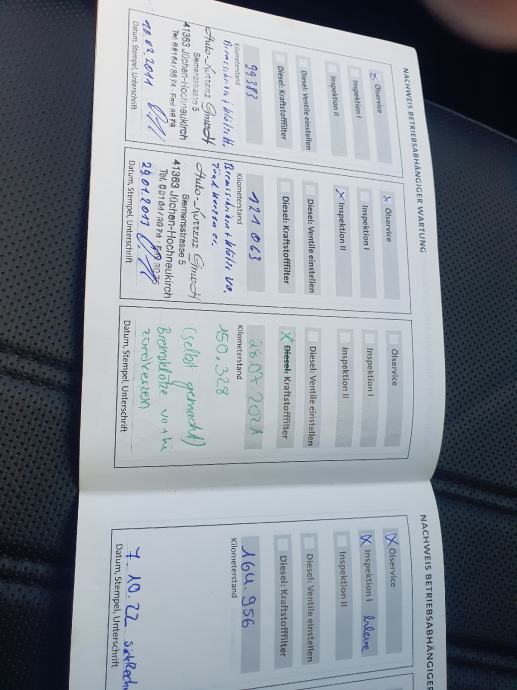 NACHWEIS BETRIEBSABHÄNGIGER WARTUNG
Ölservice
Inspektion I
Inspektion II
Diesel: Ventile einstellen
Diesel: Kraftstofffilter
99383
Kilometerstand
Auto-Kurtenz GmbH
Siemensstrasse 5
41363 Jüchen-Hochneukirch
Datum, Stempel, Unterschrift
Ölservice
Inspektion I
Inspektion II
Diesel: Ventile einstellen
Diesel: Kraftstofffilter
121.063
Kilometerstand
Auto-Kurtenz GmbH
Siemensstrasse 5
41363 Jüchen-Hochneukirch
29.01.2013
Datum, Stempel, Unterschrift
Ölservice
Inspektion I
Inspektion II
Diesel: Ventile einstellen
X Diesel: Kraftstofffilter
28.07.2021
Kilometerstand
150.328
(selbst gemacht)
Bremsklötze vo + hi
Datum, Stempel, Unterschrift
NACHWEIS BETRIEBSABHÄNGIGE
X Ölservice
X Inspektion I kleine
Inspektion II
Diesel: Ventile einstellen
Diesel: Kraftstofffilter
164.956
Kilometerstand
7.10.22
Datum, Stempel, Unterschrift